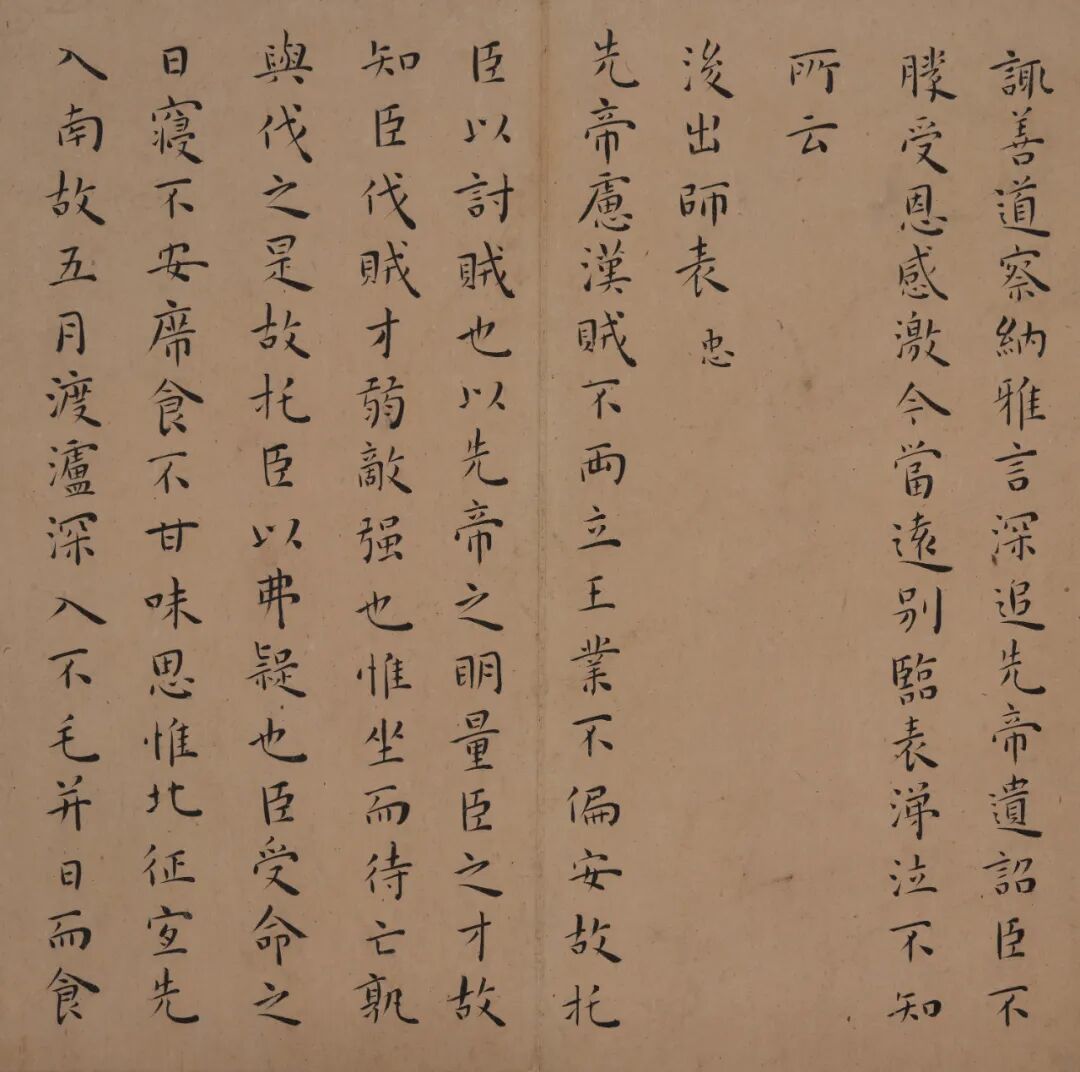 諏善道察納雅言深追先帝遺詔臣不
勝受恩感激今當遠別臨表涕泣不知
所云
後出師表 忠
先帝慮漢賊不兩立王業不偏安故托
臣以討賊也以先帝之明量臣之才故
知臣伐賊才弱敵强也惟坐而待亡孰
與伐之是故托臣以弗疑也臣受命之
日寢不安席食不甘味思惟北征宜先
入南故五月渡瀘深入不毛并日而食